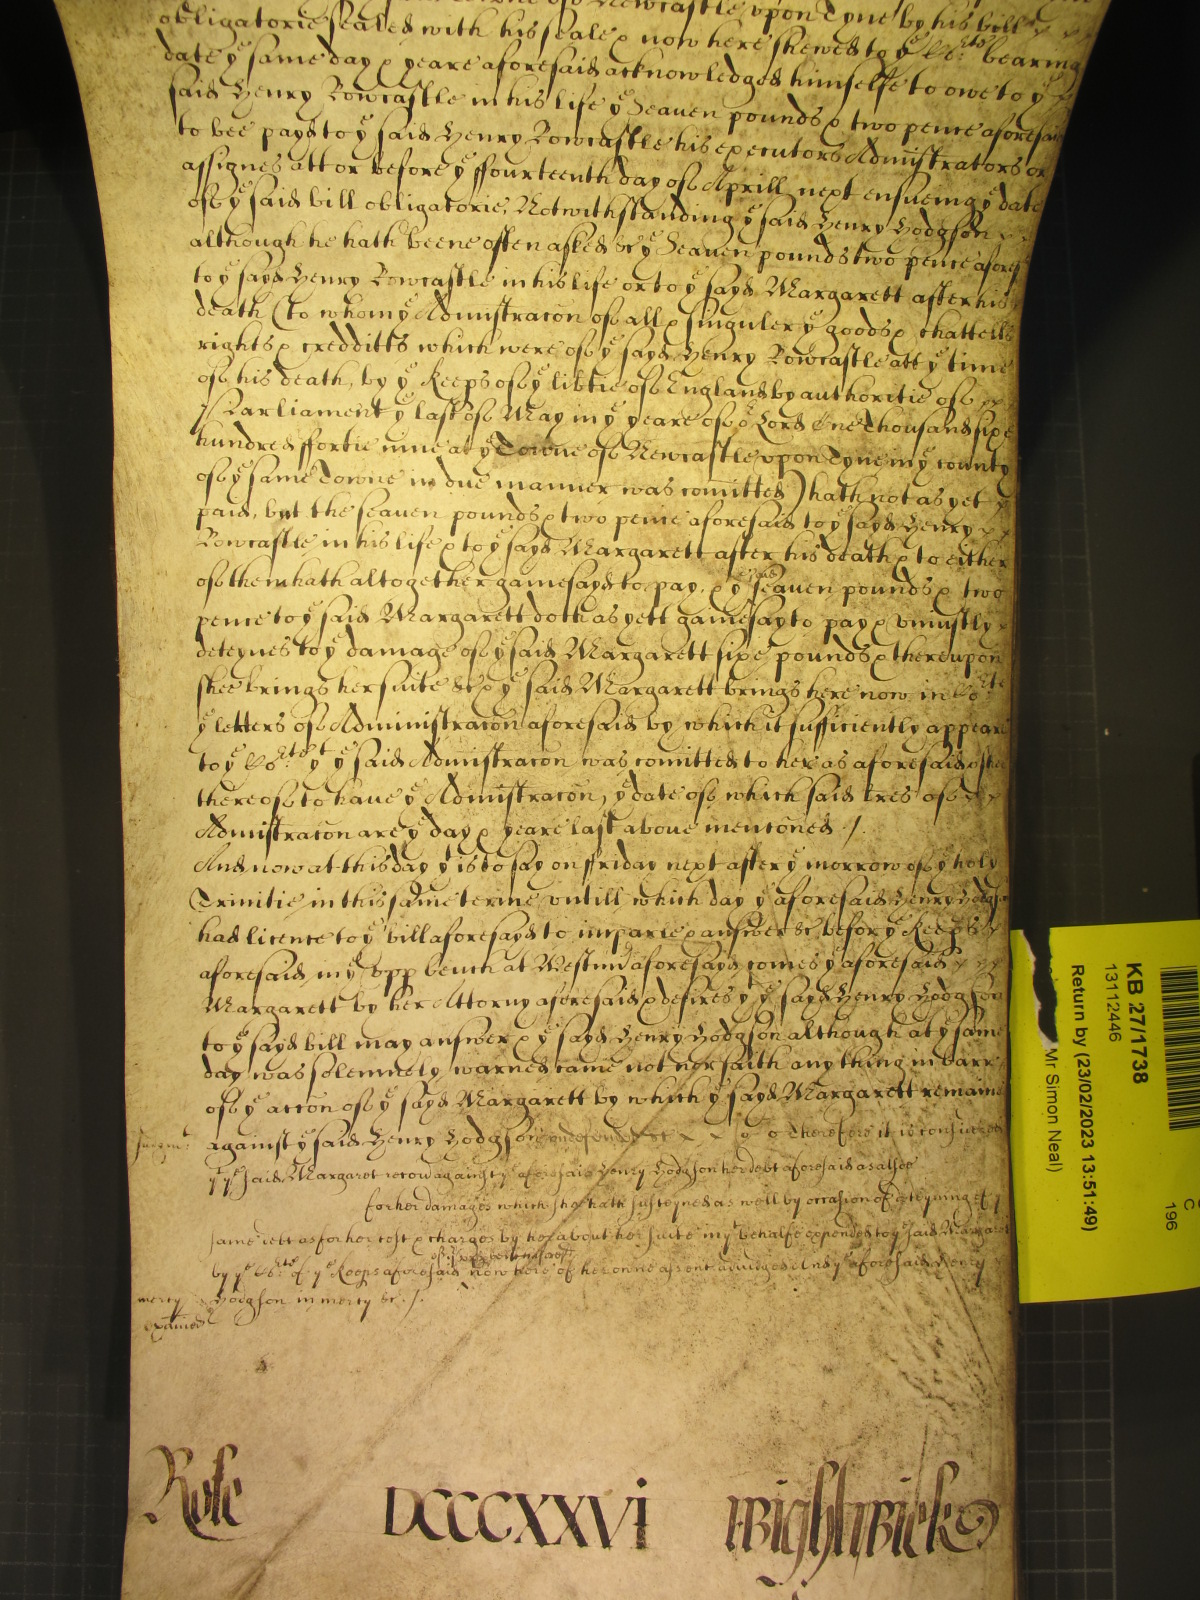 Newcastle vpon Tyne by his bill
obligatorie sealed with his seale & now here shewed to yᵉ Coʳᵗᵉ bearing
date yᵉ same day & yeare aforesaid acknowledged himselfe to owe to yᵉ
said Henry Bowcastle in his life yᵉ Seauen pounds & two pence aforesaid
to bee payd to yᵉ said Henry Bowcastle his executors Admistrators or
assignes att or before yᵉ ffourteenth day of Aprill next ensueing yᵉ date
of yᵉ said bill obligatorie, Notwithstanding yᵉ said Henry Hodgson
although he hath beene often asked &c yᵉ Seauen pounds two pence afores
to yᵉ sayd Henry Bowcastle in his life or to yᵉ sayd Margarett after his
death (to whom yᵉ Admistracon of all & singuler yᵉ goods & chattells
rights & credditts which were of yᵉ sayd Henry Bowcastle att yᵉ time
of his death, by yᵉ Keeps of yᵉ libtie of England by authoritie of
Parliament yᵉ last of May in yᵉ yeare of oʳ Lord One Thousand sixe
hundred ffortie nine at yᵉ Towne of Newcastle vpon Tyne in yᵉ county
of yᵉ same Towne in due manner was comitted) hath not as yet
paid, but the seauen pounds & two pence aforesaid to yᵉ sayd Henry
Bowcastle in his life & to yᵉ sayd Margarett after his death & to either
of them hath altogether gainesayd to pay, & yᵉ said seauen pounds & two
pence to yᵉ said Margarett doth as yett gainesay to pay & vniustly
deteynes to yᵉ damage of yᵉ said Margarett sixe pounds & thereupon
shee brings her suite &c & yᵉ said Margarett brings here now in Coʳᵗᵉ
yᵉ letters of Administracon aforesaid by which it sufficiently appears
to yᵉ Coʳᵗᵉ yᵗ yᵉ said Admistracon was comitted to her as aforesaid & shee
thereof to haue yᵉ Admistracon, yᵉ date of which said lres of
Admistracon are yᵉ day & yeare last aboue mentoned ./.
And now at this day yᵗ is to say on ffriday next after yᵉ morrow of yᵉ holy
Trinitie in this same terme vntill which day yᵉ aforesaid Henry Hodgson
had licence to yᵉ bill aforesayd to imparle & answer &c before yᵉ Keeps
aforesaid in yᵉ vpp bench at Westmʳ aforesayd comes yᵉ aforesaid
Margarett by her Attorny aforesaid & desires yᵗ yᵉ sayd Henry Hodgson
to yᵉ sayd bill may answer & yᵉ sayd Henry Hodgson although at yᵉ same
day was solemnely warned came not nor saith any thing in barr
of yᵉ accon of yᵉ sayd Margarett by which yᵉ sayd Margarett remaines
against yᵉ said Henry Hodgson vndefended &c Therefore it is considered
yᵗ yᵉ said Margaret recou against yᵉ aforesaid Henry Hodgson her debt aforesaid as alsoe
for her damages which she hath susteyned as well by occasion of deteyning of yᵉ
same debt as for her cost & charges by her about her suite in yᵗ behalfe expended to yᵉ said Margaret
by yᵉ Coʳᵗᵉ of yᵉ Keeps aforesaid now here of her owne assent adiudged And yᵉ aforesaid Henry
mercy Hodgson in mercy &c ./.
examied
Role DCCCXXVi Wightwick
KB 27/1738
13112446
Return by (23/02/2023 13:51:49)
Mr Simon Neal)
C
196